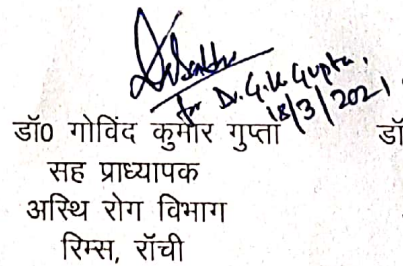 for Dr. G.K Gupta.
18/3/2021
डॉ० गोविंद कुमार गुप्ता डॉ
सह प्राध्यापक
अस्थि रोग विभाग
रिम्स, रॉची